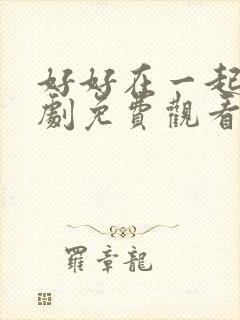 好好在一起
劇免費觀看
羅章龍